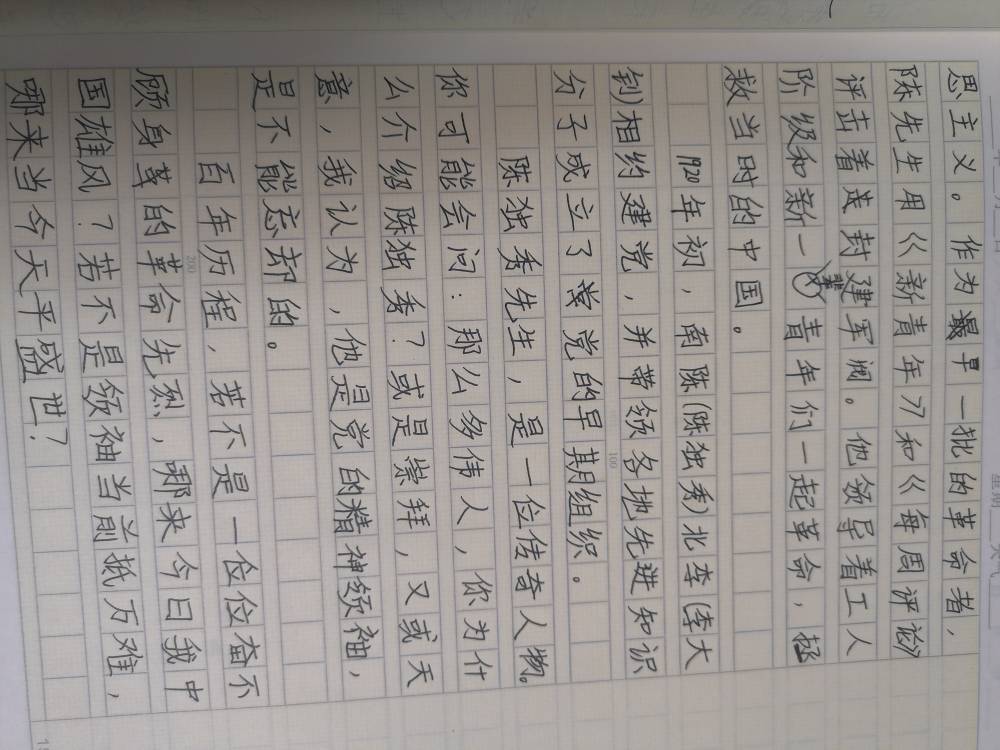 思主义。作为最早一批的革命者，
陈先生用《新青年》和《每周评论》
评击着送封建军阀。他领导着工人
阶级和新一辈青年们一起革命，拯
救当时的中国。
1920年初，南陈(陈独秀)北李(李大
钊)相约建党，并带领各地先进知识
分子成立了党的早期组织。
陈独秀先生，是一位传奇人物。
你可能会问：那么多伟人，你为什
么介绍陈独秀？或是崇拜，又或天
意，我认为，他是党的精神领袖，
是不能忘却的。
百年历程，若不是一位位奋不
顾身革的革命先烈，哪来今日我中
国雄风？若不是领袖当前抵万难，
哪来当今天平盛世？
100
200